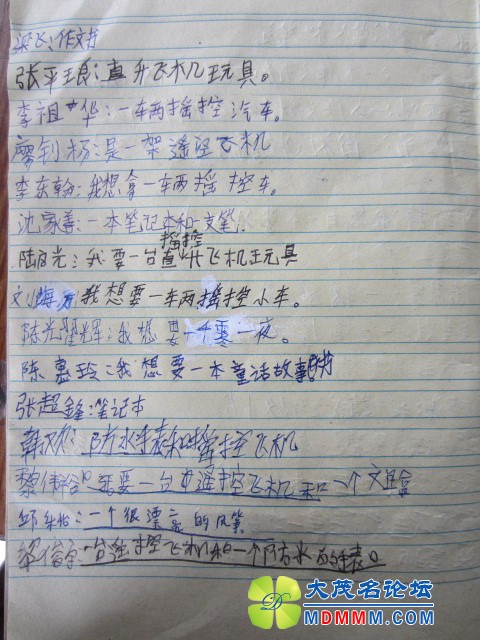 梁飞:作文书
张平王良:直升飞机王玩具。
李祖华:一车两摇控汽车。
廖钊杨:是一架遥控飞机
李东翰:我想拿一车两摇控车。
沈家善:一本笔记本和一支笔.
摇控
陆启光:我要一台直升飞机玩具
刘海 我想要一车两摇控小车。
陈光 辉:我想要一个零一夜。
陈惠玲:我想要一本童话故事书
张超鑫:笔记本
防水手表和摇控飞机
黎伟 要一台 遥控飞机和一个文具盒
邱 :一个很漂亮的风筝
梁 一台 控飞机和一个防水的手表。
大茂名论坛
MDMMM.COM